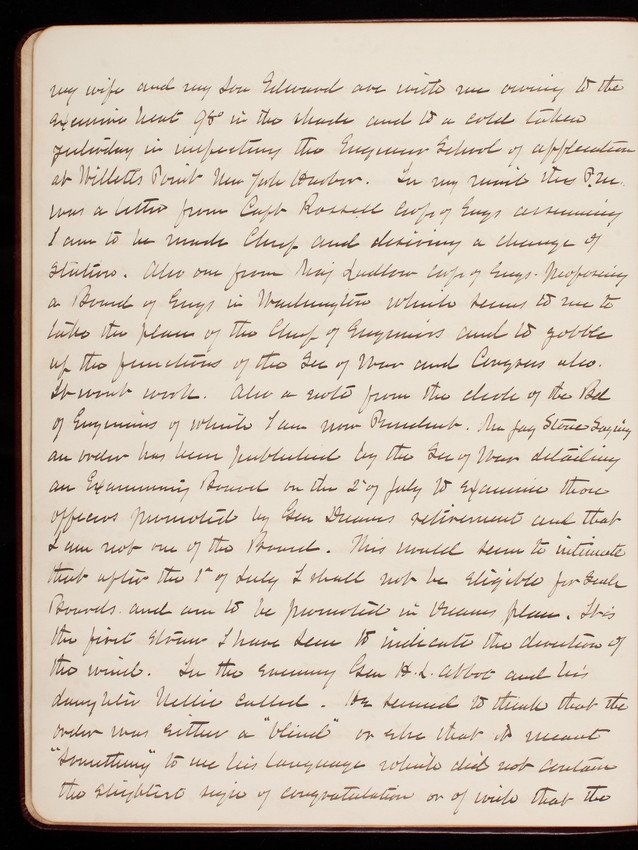 my wife and my son Edward are with me owing to the
extreme heat 98° in the shade and to a cold taken
yesterday in inspecting the Engineer School of application
at Willetts Point New York Harbor. In my mail this P.M.
was a letter from Capt Rossell Corps of Engs assuming
I am to be made Chief and desiring a change of
station. Also one from Maj Ludlow Corps of Engs. proposing
a Board of Engs in Washington which seems to me to
take the place of the Chief of Engineers and to gobble
up the functions of the Sec of War and Congress also.
It wont work. Also a note from the clerk of the Bd
of Engineers of which I am now President. Mr Jas Stone saying
an order has been published by the Sec of War detailing
an Examining Board on the 2d of July to examine those
officers promoted by Gen Duanes retirement and that
I am not one of the Board. This would seem to intimate
that after the 1st of July I shall not be eligible for such
Boards and am to be promoted in Duanes place. It is
the first straw I have seen to indicate the direction of
the wind. In the evening Gen H. L. Abbot and his
daughter Nellie called. He seemed to think that the
order was either a "blind" or else that it meant
"something" to me his language which did not contain
the slightest sign of congratulation or of wish that the